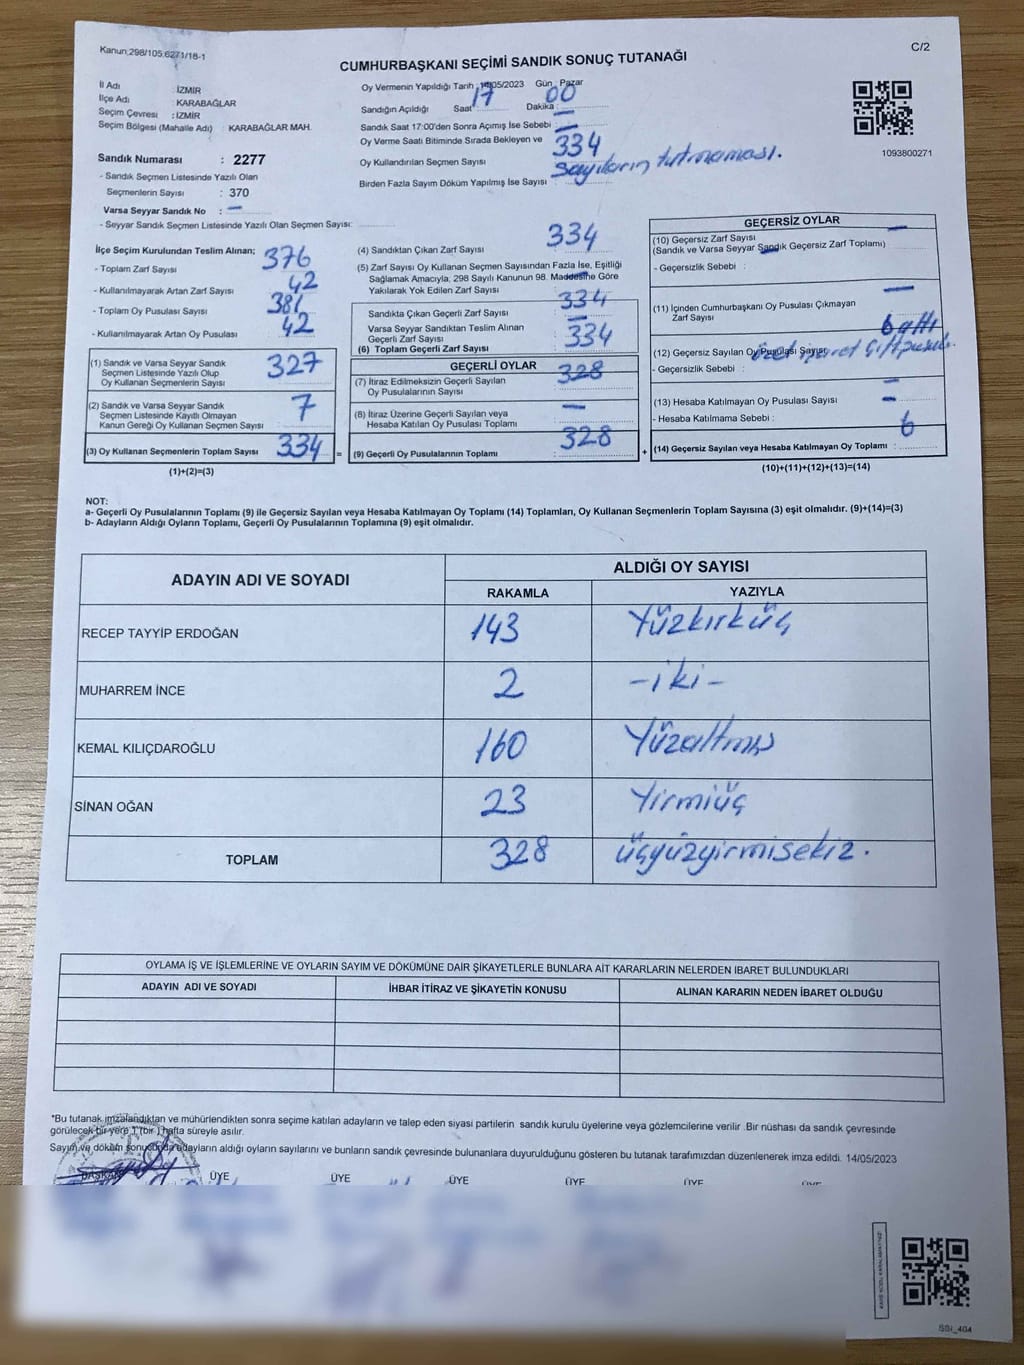 Kanun,298/105,6271/18-1
C/2
CUMHURBAŞKANI SEÇİMİ SANDIK SONUÇ TUTANAĞI
İl Adı : İZMİR
İlçe Adı : KARABAĞLAR
Seçim Çevresi : İZMİR
Seçim Bölgesi (Mahalle Adı) KARABAĞLAR MAH.
Sandık Numarası : 2277
- Sandık Seçmen Listesinde Yazılı Olan
Seçmenlerin Sayısı : 370
Varsa Seyyar Sandık No : —
- Seyyar Sandık Seçmen Listesinde Yazılı Olan Seçmen Sayısı:
Oy Vermenin Yapıldığı Tarih : 14/05/2023 Gün : Pazar
Sandığın Açıldığı Saat 17 Dakika : 00
Sandık Saat 17:00'den Sonra Açımış İse Sebebi : —
Oy Verme Saati Bitiminde Sırada Bekleyen ve
Oy Kullandırılan Seçmen Sayısı : 334
Birden Fazla Sayım Döküm Yapılmış İse Sayısı : Sayıların tutmaması.
1093800271
İlçe Seçim Kurulundan Teslim Alınan;
- Toplam Zarf Sayısı : 376
- Kullanılmayarak Artan Zarf Sayısı : 42
- Toplam Oy Pusulası Sayısı : 381
- Kullanılmayarak Artan Oy Pusulası : 42
(1) Sandık ve Varsa Seyyar Sandık
Seçmen Listesinde Yazılı Olup
Oy Kullanan Seçmenlerin Sayısı : 327
(2) Sandık ve Varsa Seyyar Sandık
Seçmen Listesinde Kayıtlı Olmayan
Kanun Gereği Oy Kullanan Seçmen Sayısı : 7
(3) Oy Kullanan Seçmenlerin Toplam Sayısı : 334 =
(1)+(2)=(3)
(4) Sandıktan Çıkan Zarf Sayısı : 334
(5) Zarf Sayısı Oy Kullanan Seçmen Sayısından Fazla İse, Eşitliği
Sağlamak Amacıyla, 298 Sayılı Kanunun 98. Maddesine Göre
Yakılarak Yok Edilen Zarf Sayısı : —
Sandıkta Çıkan Geçerli Zarf Sayısı : 334
Varsa Seyyar Sandıktan Teslim Alınan
Geçerli Zarf Sayısı : —
(6) Toplam Geçerli Zarf Sayısı : 334
GEÇERLİ OYLAR
(7) İtiraz Edilmeksizin Geçerli Sayılan
Oy Pusulalarının Sayısı : 328
(8) İtiraz Üzerine Geçerli Sayılan veya
Hesaba Katılan Oy Pusulası Toplamı : —
(9) Geçerli Oy Pusulalarının Toplamı : 328 +
GEÇERSİZ OYLAR
(10) Geçersiz Zarf Sayısı : —
(Sandık ve Varsa Seyyar Sandık Geçersiz Zarf Toplamı)
- Geçersizlik Sebebi : —
(11) İçinden Cumhurbaşkanı Oy Pusulası Çıkmayan
Zarf Sayısı : —
(12) Geçersiz Sayılan Oy Pusulası Sayısı : 6 altı
- Geçersizlik Sebebi :
(13) Hesaba Katılmayan Oy Pusulası Sayısı : —
- Hesaba Katılmama Sebebi : —
(14) Geçersiz Sayılan veya Hesaba Katılmayan Oy Toplamı : 6
(10)+(11)+(12)+(13)=(14)
NOT:
a- Geçerli Oy Pusulalarının Toplamı (9) ile Geçersiz Sayılan veya Hesaba Katılmayan Oy Toplamı (14) Toplamları, Oy Kullanan Seçmenlerin Toplam Sayısına (3) eşit olmalıdır. (9)+(14)=(3)
b- Adayların Aldığı Oyların Toplamı, Geçerli Oy Pusulalarının Toplamına (9) eşit olmalıdır.
ADAYIN ADI VE SOYADI ALDIĞI OY SAYISI
RAKAMLA YAZIYLA
RECEP TAYYİP ERDOĞAN 143 Yüzkırküç
MUHARREM İNCE 2 -iki-
KEMAL KILIÇDAROĞLU 160 Yüzaltmış
SİNAN OĞAN 23 Yirmiüç
TOPLAM 328 üçyüzyirmisekiz.
OYLAMA İŞ VE İŞLEMLERİNE VE OYLARIN SAYIM VE DÖKÜMÜNE DAİR ŞİKAYETLERLE BUNLARA AİT KARARLARIN NELERDEN İBARET BULUNDUKLARI
ADAYIN ADI VE SOYADI İHBAR İTİRAZ VE ŞİKAYETİN KONUSU ALINAN KARARIN NEDEN İBARET OLDUĞU
*Bu tutanak imzalandıktan ve mühürlendikten sonra seçime katılan adayların ve talep eden siyasi partilerin sandık kurulu üyelerine veya gözlemcilerine verilir .Bir nüshası da sandık çevresinde
görülecek bir yere 1 (bir ) hafta süreyle asılır.
Sayım ve döküm sonucunda adayların aldığı oyların sayılarını ve bunların sandık çevresinde bulunanlara duyurulduğunu gösteren bu tutanak tarafımızdan düzenlenerek imza edildi. 14/05/2023
BAŞKAN ÜYE ÜYE ÜYE ÜYE ÜYE ÜYE
SSI_404